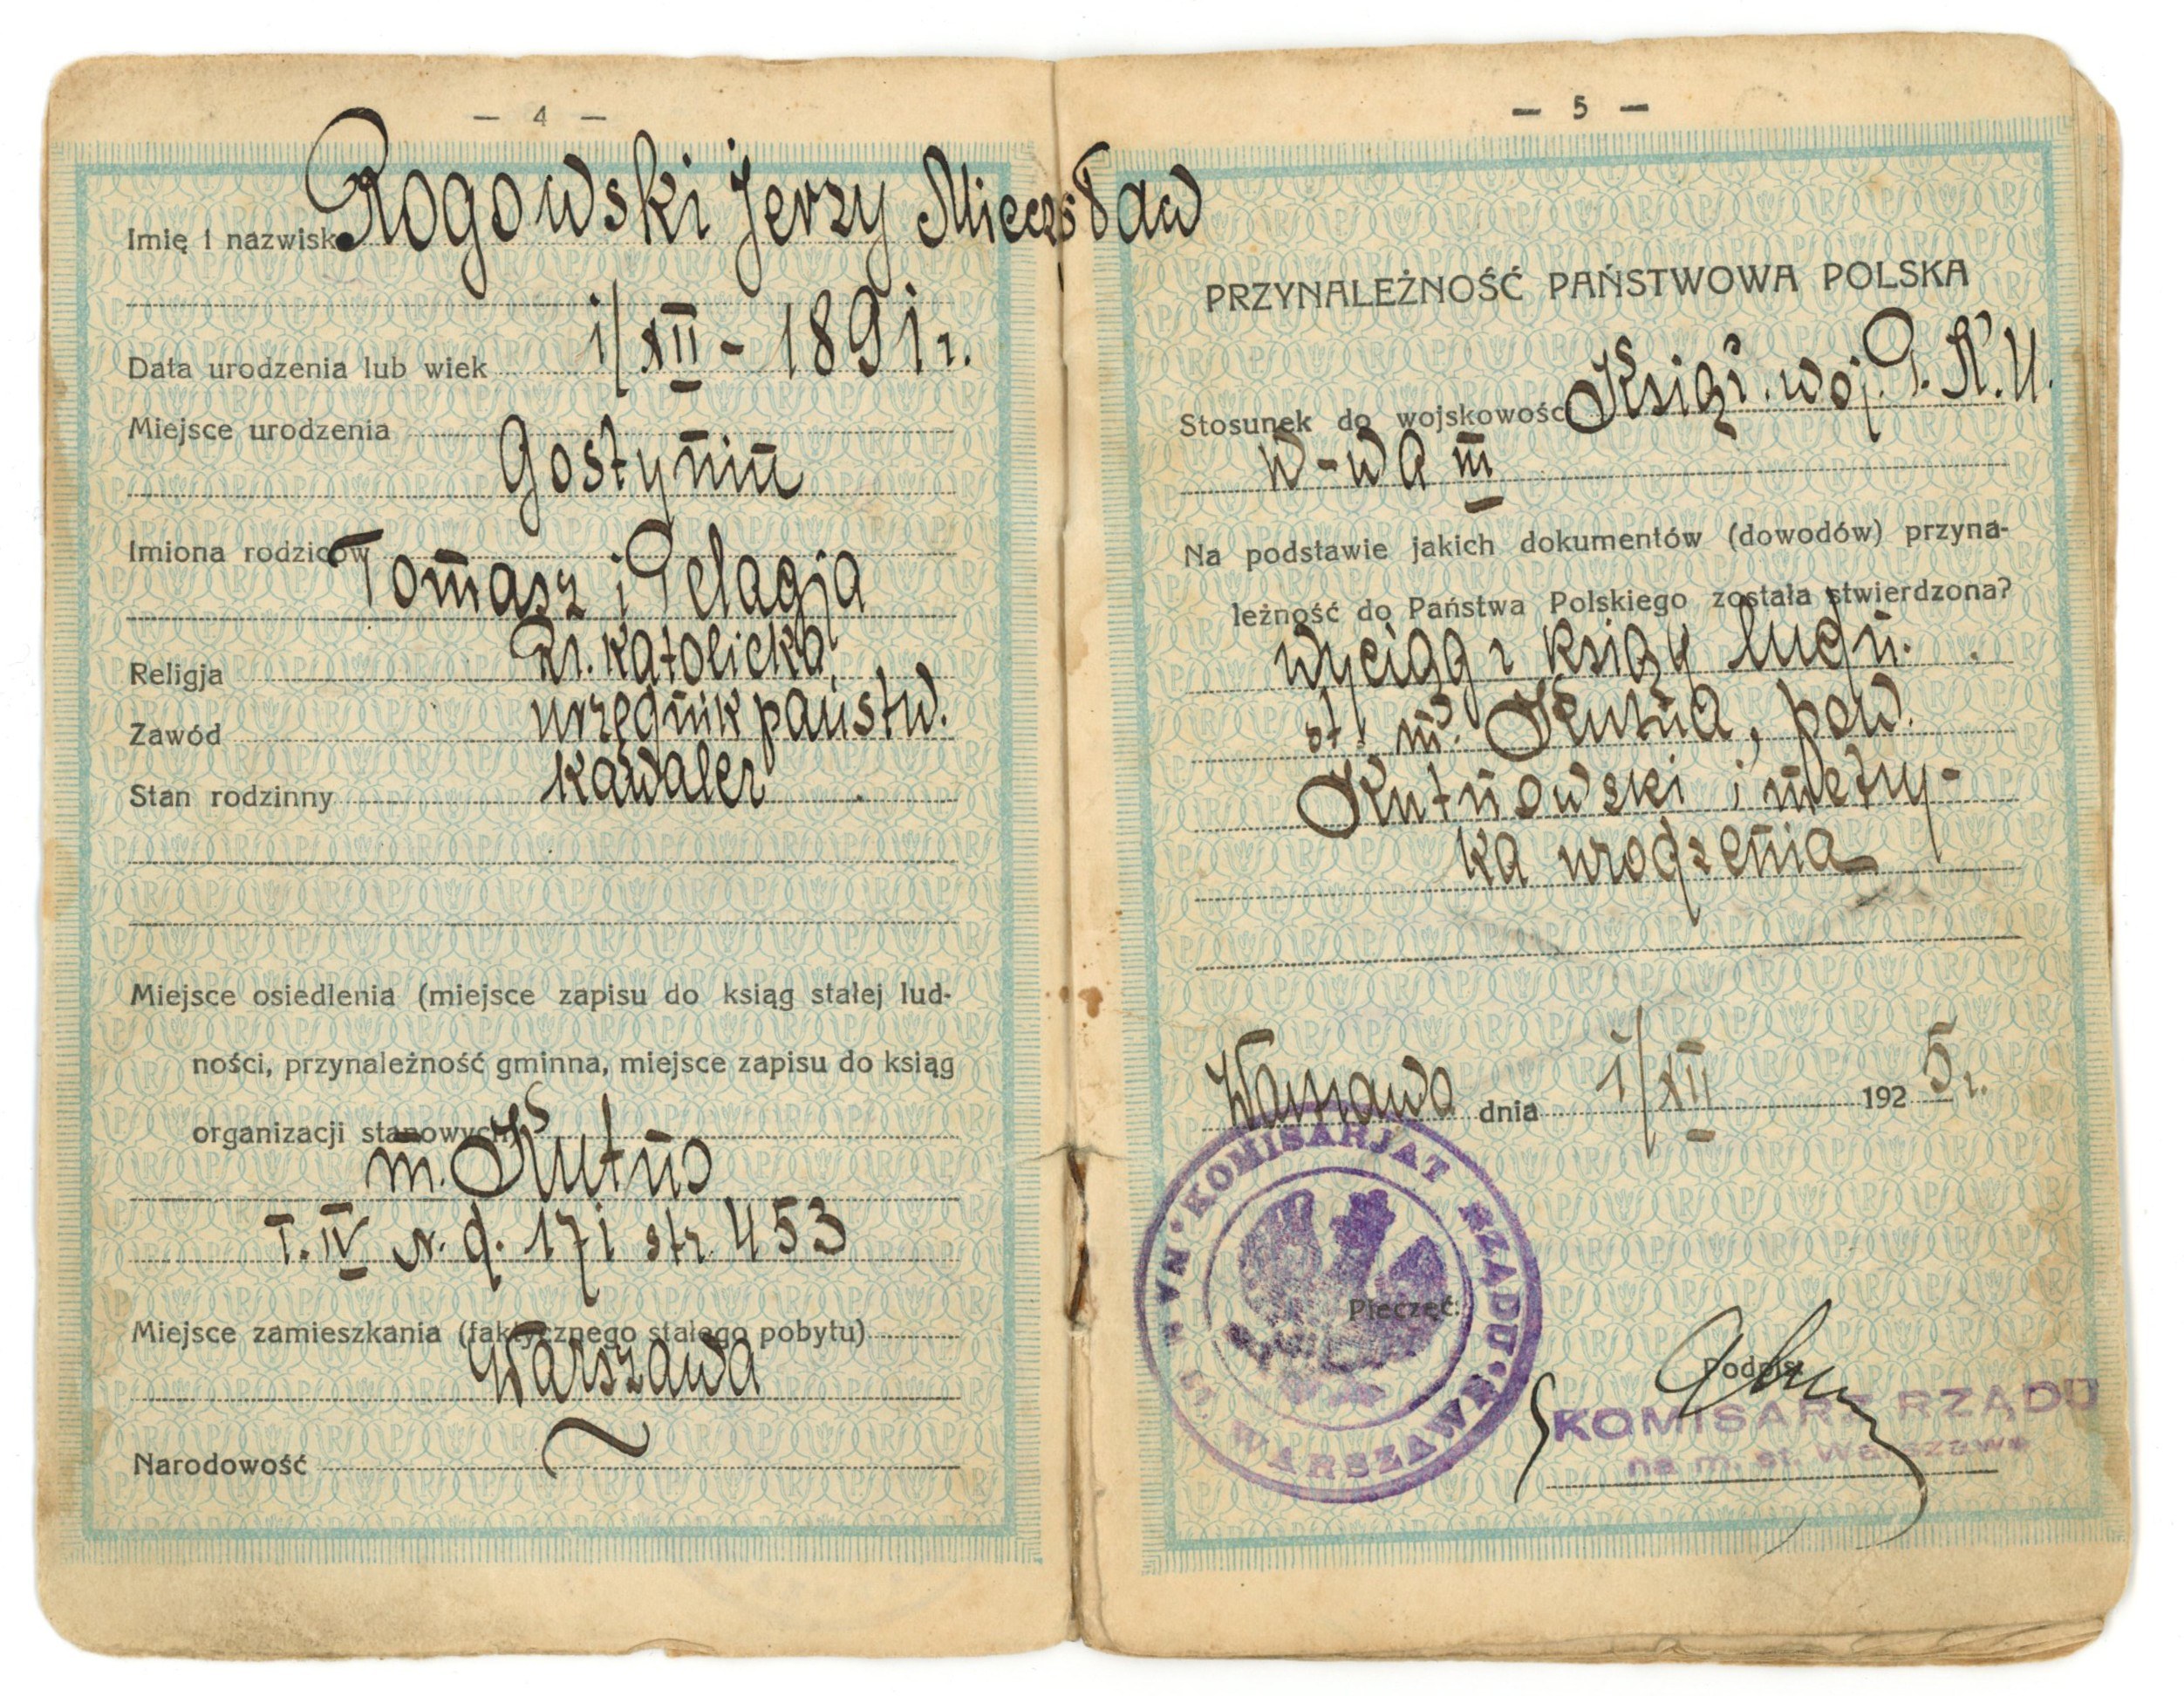 — 4 —
Imię i nazwisko Rogowski Jerzy Mieczysław
Data urodzenia lub wiek 1/XII - 1891 r.
Miejsce urodzenia
Gostynin
Imiona rodziców
Tomasz i Pelagja
Religja Rz. katolicka
Zawód urzędnik państw.
Stan rodzinny kawaler
Miejsce osiedlenia (miejsce zapisu do ksiąg stałej lud-
ności, przynależność gminna, miejsce zapisu do ksiąg
organizacji stanowych)
m. Kutno
T. IV N. d. 171 str. 453
Miejsce zamieszkania (faktycznego stałego pobytu)
Warszawa
Narodowość
— 5 —
PRZYNALEŻNOŚĆ PAŃSTWOWA POLSKA
Stosunek do wojskowości Książ. woj. P. K. U.
W-wa III
Na podstawie jakich dokumentów (dowodów) przyna-
leżność do Państwa Polskiego została stwierdzona?
Wyciąg z księgi ludn.
st. m. Kutna, pow.
Kutnowski i metry-
ka urodzenia
Warszawa dnia 1/XII 1925 r.
KOMISARJAT RZĄDU NA M. ST. WARSZAWĘ
Pieczęć:
Podpis:
KOMISARZ RZĄDU
na m. st. Warszawę